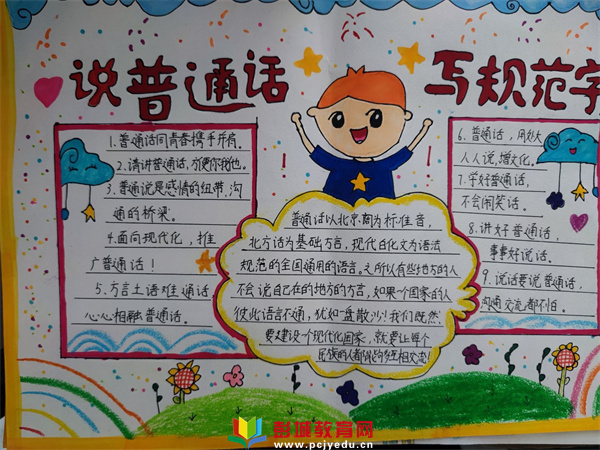 说普通话 写规范字
1.普通话同青春携手并肩。
2.请讲普通话,方便你我他。
3.普通说是感情的纽带、沟
通的桥梁。
4.面向现代化,推
广普通话!
5.方言土语难通话
心心相融普通话。
普通话以北京商为标准音,
北方话为基础方言,现代白化文为语法
规范的全国通用的语言。之所以有些地方的人
不会说自己在的地方的方言,如果一个国家的人
彼此语言不通,犹如一盘散沙!我们既然
要建设一个现代化国家,就要让每个
民族的人都能互相交流!
6.普通话,用处大
人人说,增文化。
7.学好普通话,
不会闹笑话。
8.讲好普通话,
事事好说话。
9.说话要说普通话,
沟通交流都不怕。
彭城教育网
www.pcjyedu.cn